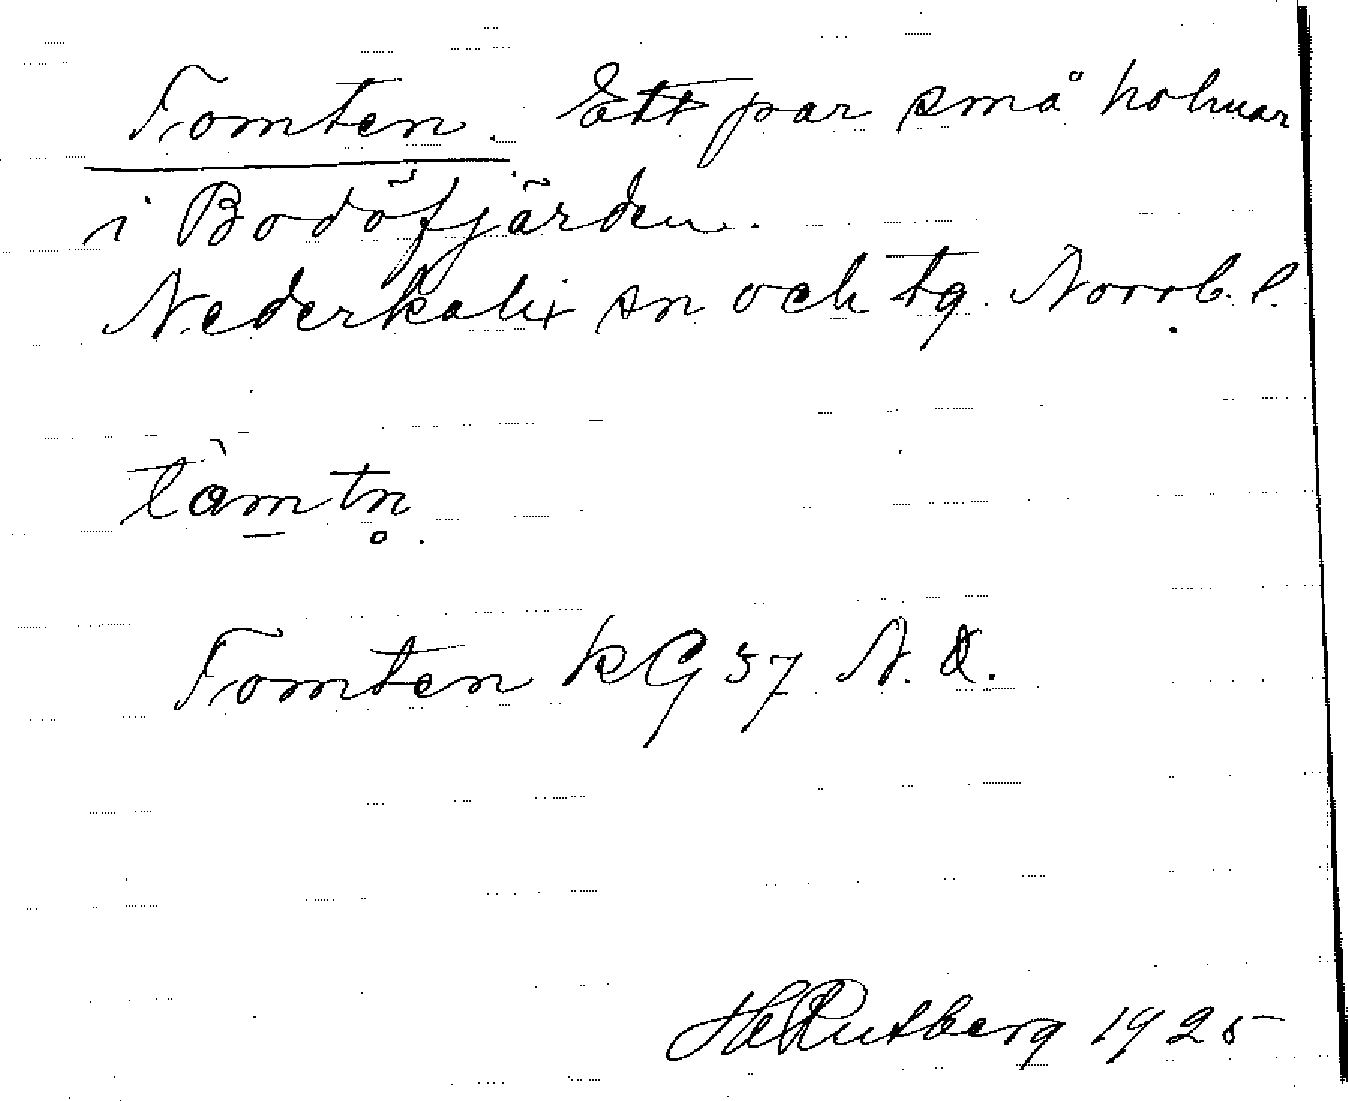 Tomten. Ett par små holmar
i Bodöfjärden.
Nederkalix sn och tg. Norrb. l.
tòmtn̥.
Tomten kG 57 N.O.
H Rutberg 1925